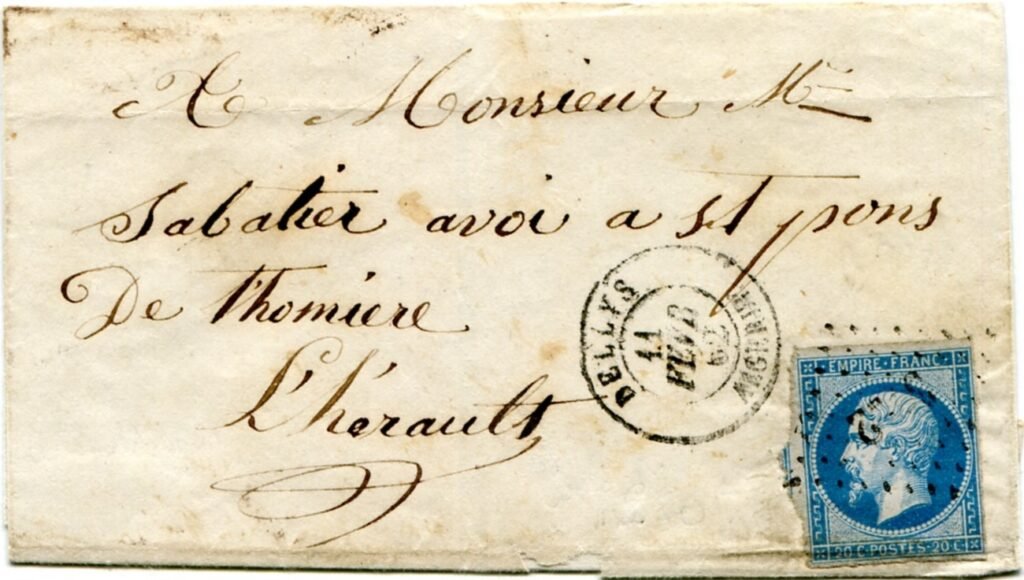 A Monsieur Mr
Sabatier avoi a st pons
De Thomiere
L'hérault
DELLYS
11
FEVR
62
EMPIRE FRANC
20 C POSTES 20 C